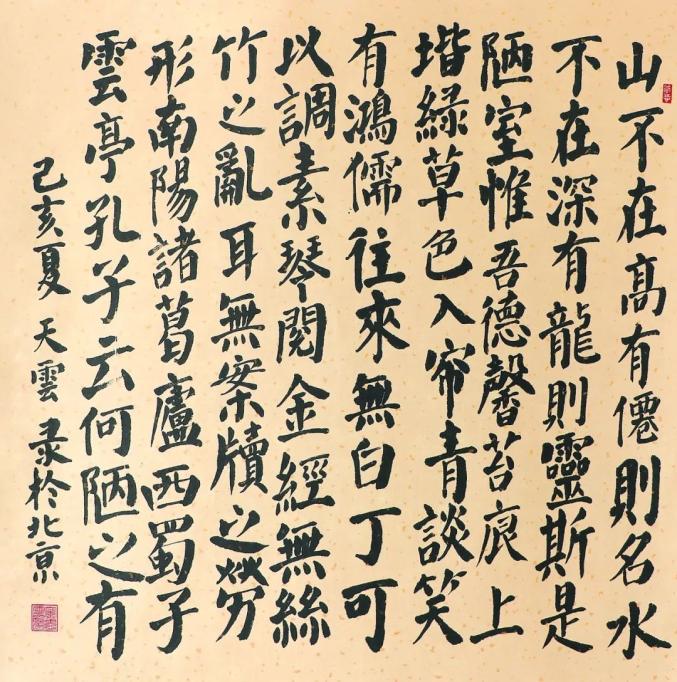 山不在高有僊則名水
不在深有龍則靈斯是
陋室惟吾德馨苔痕上
堦綠草色入帘青談笑
有鴻儒往來無白丁可
以調素琴閱金經無絲
竹之亂耳無案牘之勞
形南陽諸葛廬西蜀子
雲亭孔子云何陋之有
己亥夏天雲录於北京